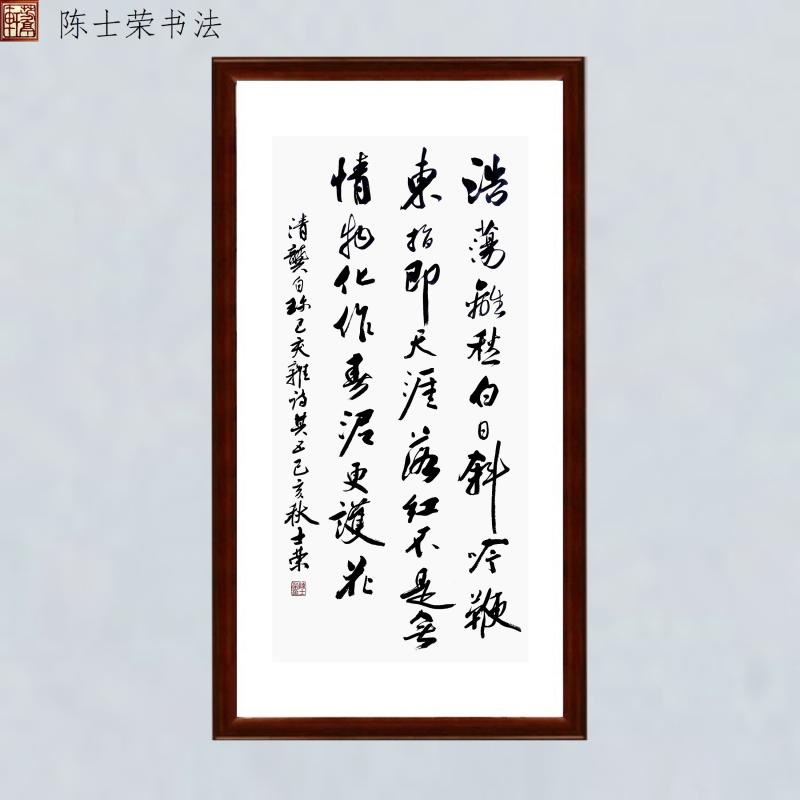 陈士荣书法
浩蕩離愁白日斜吟鞭
東指即天涯落紅不是無
情物化作春泥更護花
清龔自珍己亥雜詩其五己亥秋士荣